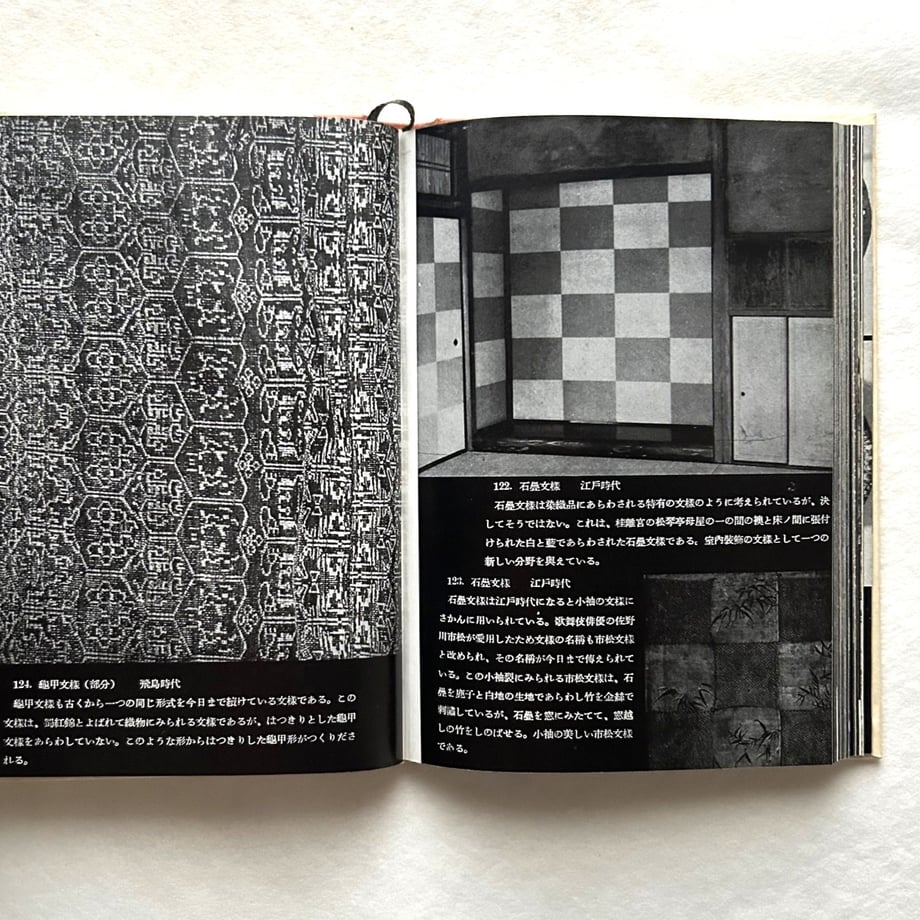 122. 石畳文様　江戸時代
石畳文様は染織品にあらわされる特有の文様のように考えられているが、決
してそうではない。これは、桂離宮の松琴亭母屋の一の間の襖と床ノ間に張付
けられた白と藍であらわされた石畳文様である。室内装飾の文様として一つの
新しい分野を與えている。
123. 石畳文様　江戸時代
石畳文様は江戸時代になると小袖の文様に
さかんに用いられている。歌舞伎俳優の佐野
川市松が愛用したため文様の名稱も市松文様
と改められ、その名稱が今日まで傳えられて
いる。この小袖裂にみられる市松文様は、石
畳を鹿子と白地の生地であらわし竹を金絲で
刺繡しているが、石畳を窓にみたてて、窓越
しの竹をしのばせる。小袖の美しい市松文様
である。
124. 龜甲文様（部分）　飛鳥時代
龜甲文様も古くから一つの同じ形式を今日まで續けている文様である。この
文様は、蜀紅錦とよばれて織物にみられる文様であるが、はつきりとした龜甲
文様をあらわしていない。このような形からはつきりした龜甲形がつくりださ
れる。